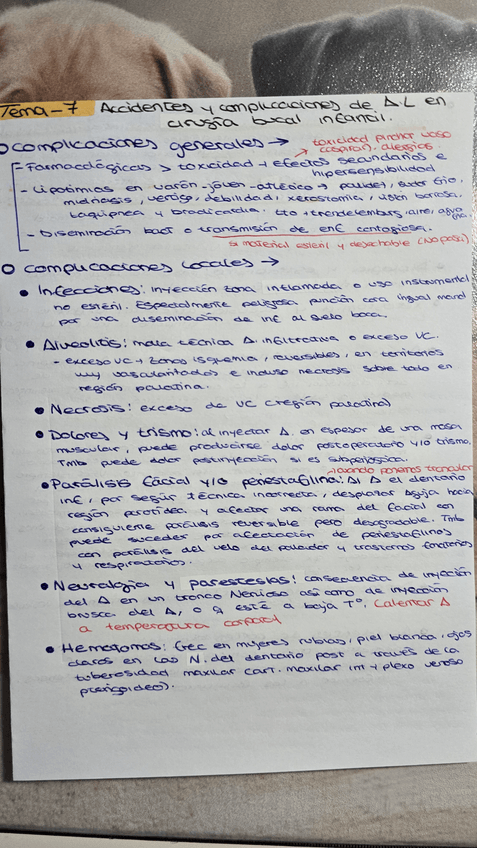 Tema-7 Accidentes y complicaciones de A.L en
cirugía bucal infantil.
O complicaciones generales →
toxicidad pinchar vaso
(aspirar), alergias
- Farmacológicas > toxicidad + efectos secundarios e
hipersensibilidad
- Lipotimias en varón-joven-atlético → palidez, sudor frío,
midriasis, vértigo, debilidad, xerostomia, visión borrosa,
taquipnea y bradicardia. tto → trendelemburg, aire,
- Diseminación bact o transmisión de enf contagiosa.
si material esteril y desechable (NO pasa)
O complicaciones locales →
• Infecciones: inyección zona inflamada o uso instrumental
no esteril. Especialmente peligrosa punción cara lingual mand
por una diseminación de inf al suelo boca.
• Alveolitis: mala técnica A. infiltrativa o exceso VC.
- exceso VC → zonas isquemia, reversibles, en territorios
muy vascularizados e incluso necrosis sobre todo en
región palatina.
• Necrosis: exceso de VC (región palatina)
• Dolores y trismo: al inyectar A. en espesor de una masa
muscular, puede producirse dolor postoperatorio y/o trismo.
Tmb puede dolor postinyección si es subperióstica.
→ cuando ponemos troncular
• Parálisis facial y/o periestafilina: Al A el dentario
inf, por seguir técnica incorrecta, desplazar aguja hacia
región parotidea y afectar una rama del facial con
consiguiente parálisis reversible pero desagradable. Tmb
puede suceder por afectación de periestafilinos
con parálisis del velo del paladar y trastornos fonatorios
y respiratorios.
• Neuralgia y parestesias: consecuencia de inyección
del A en un tronco nervioso así como de inyección
brusca del A, o q este a baja Tº. Calentar A
a temperatura corporal
• Hematomas: frec en mujeres rubias, piel blanca, ojos
claros en las N. del dentario post a través de la
tuberosidad maxilar (art. maxilar int y plexo venoso
pterigoideo).